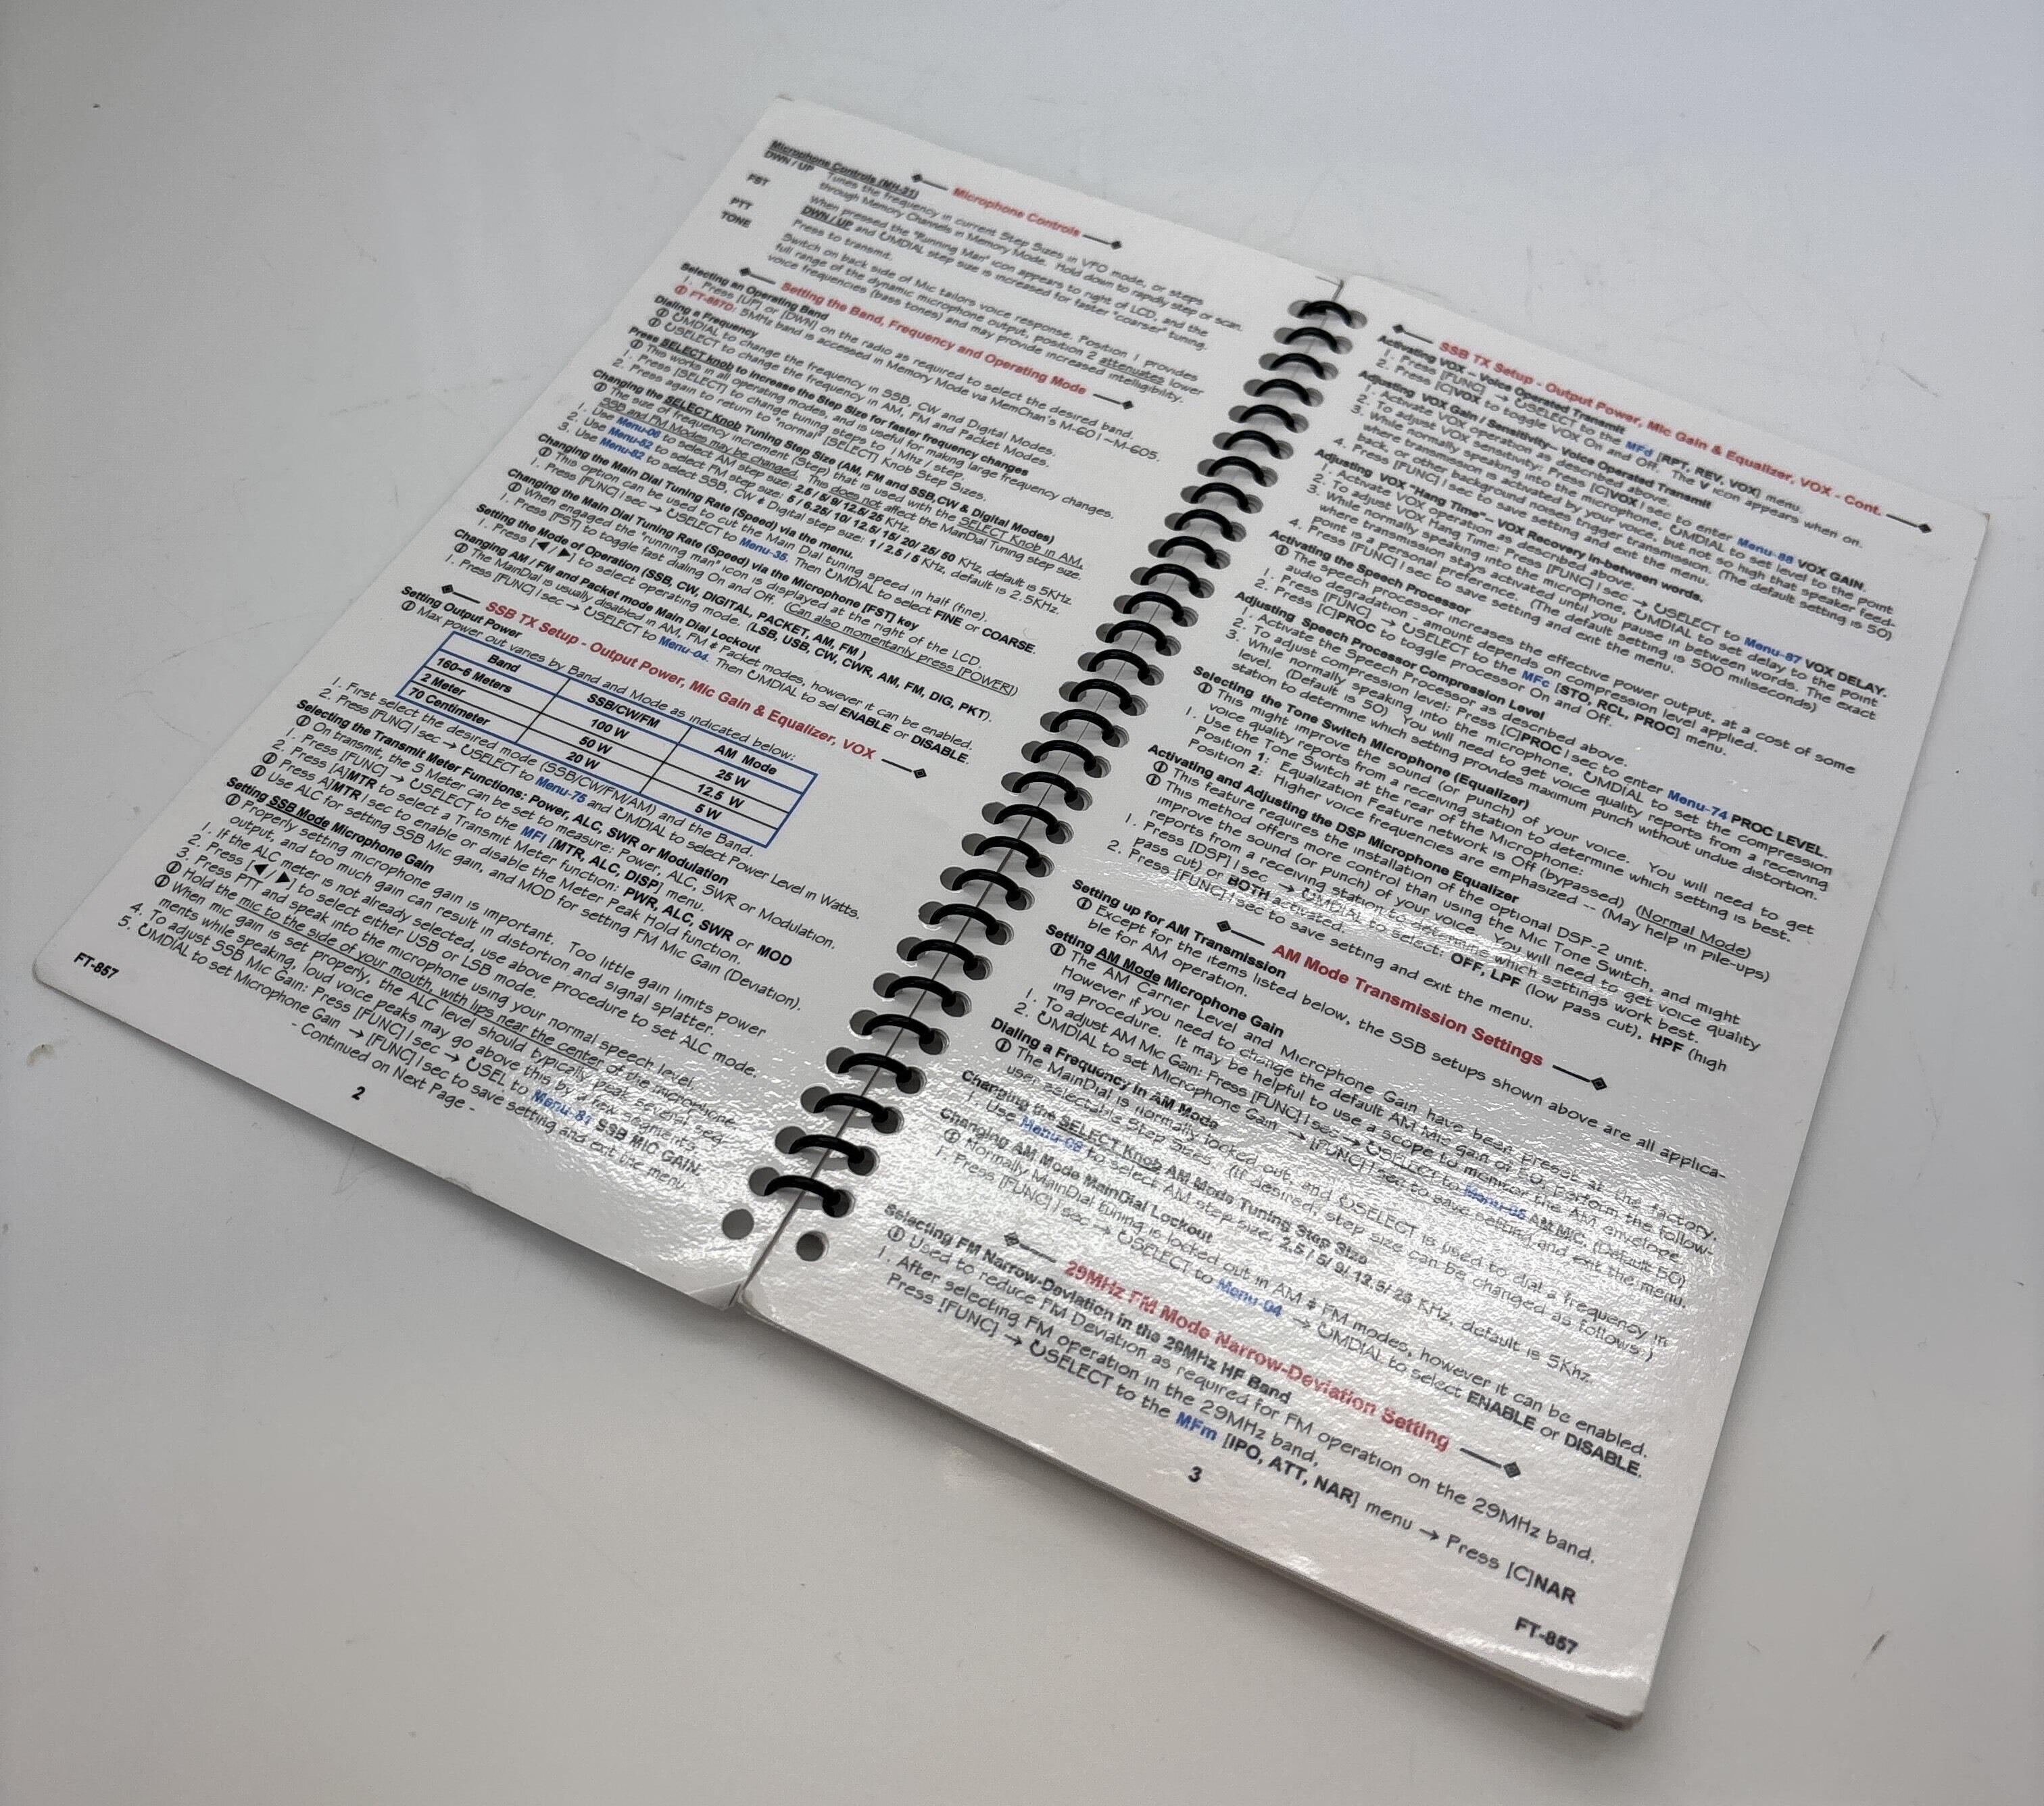 Microphone Controls
Microphone Controls (MH-31)
DWN / UP Tunes the frequency in current Step Sizes in VFO mode, or steps
through Memory Channels in Memory Mode. Hold down to rapidly step or scan.
FST When pressed the "Running Man" icon appears to right of LCD, and the
DWN / UP and ↻MDIAL step size is increased for faster "coarser" tuning.
PTT Press to transmit.
TONE Switch on back side of Mic tailors voice response. Position 1 provides
full range of the dynamic microphone output, position 2 attenuates lower
voice frequencies (bass tones) and may provide increased intelligibility.
Setting the Band, Frequency and Operating Mode
Selecting an Operating Band
1. Press [UP] or [DWN] on the radio as required to select the desired band.
ⓘ FT-857D: 5MHz band is accessed in Memory Mode via MemChan's M-601~M-605.
Dialing a Frequency
ⓘ ↻MDIAL to change the frequency in SSB, CW and Digital Modes.
ⓘ ↻SELECT to change the frequency in AM, FM and Packet Modes.
Press SELECT knob to increase the Step Size for faster frequency changes
ⓘ This works in all operating modes, and is useful for making large frequency changes.
1. Press [SELECT] to change tuning steps to 1Mhz / step
2. Press again to return to "normal" [SELECT] Knob Step Sizes.
Changing the SELECT Knob Tuning Step Size (AM, FM and SSB,CW & Digital Modes)
ⓘ The size of frequency increment (Step) that is used with the SELECT Knob in AM,
SSB and FM Modes may be changed. This does not affect the MainDial Tuning step size.
1. Use Menu-06 to select AM step size: 2.5 / 5/ 9/ 12.5/ 25 KHz
2. Use Menu-52 to select FM step size: 5 / 6.25/ 10/ 12.5/ 15/ 20/ 25/ 50 KHz, default is 5KHz
3. Use Menu-82 to select SSB, CW & Digital step size: 1 / 2.5 / 5 KHz, default is 2.5KHz.
Changing the Main Dial Tuning Rate (Speed) via the menu.
ⓘ This option can be used to cut the Main Dial tuning speed in half (fine).
1. Press [FUNC] 1sec → ↻SELECT to Menu-35. Then ↻MDIAL to select FINE or COARSE.
Changing the Main Dial Tuning Rate (Speed) via the Microphone [FST] key
ⓘ When engaged the "running man" icon is displayed at the right of the LCD.
1. Press [FST] to toggle fast dialing On and Off. (Can also momentarily press [POWER])
Setting the Mode of Operation (SSB, CW, DIGITAL, PACKET, AM, FM )
1. Press [◀ / ▶] to select operating mode. (LSB, USB, CW, CWR, AM, FM, DIG, PKT).
Changing AM / FM and Packet mode Main Dial Lockout
ⓘ The MainDial is usually disabled in AM, FM & Packet modes, however it can be enabled.
1. Press [FUNC] 1sec → ↻SELECT to Menu-04. Then ↻MDIAL to sel ENABLE or DISABLE.
SSB TX Setup - Output Power, Mic Gain & Equalizer, VOX
Setting Output Power
ⓘ Max power out varies by Band and Mode as indicated below:
Band SSB/CW/FM AM Mode
160~6 Meters 100 W 25 W
2 Meter 50 W 12.5 W
70 Centimeter 20 W 5 W
1. First select the desired mode (SSB/CW/FM/AM) and the Band.
2. Press [FUNC] 1sec → ↻SELECT to Menu-75 and ↻MDIAL to select Power Level in Watts.
Selecting the Transmit Meter Functions: Power, ALC, SWR or Modulation
ⓘ On transmit, the S Meter can be set to measure: Power, ALC, SWR or Modulation.
1. Press [FUNC] → ↻SELECT to the MFl [MTR, ALC, DISP] menu.
2. Press [A]MTR to select a Transmit Meter function: PWR, ALC, SWR or MOD
ⓘ Press A]MTR 1sec to enable or disable the Meter Peak Hold function.
ⓘ Use ALC for setting SSB Mic gain, and MOD for setting FM Mic Gain (Deviation).
Setting SSB Mode Microphone Gain
ⓘ Properly setting microphone gain is important. Too little gain limits power
output, and too much gain can result in distortion and signal splatter.
1. If the ALC meter is not already selected, use above procedure to set ALC mode.
2. Press [◀ / ▶] to select either USB or LSB mode.
3. Press PTT and speak into the microphone using your normal speech level.
ⓘ Hold the mic to the side of your mouth, with lips near the center of the microphone.
ⓘ When mic gain is set properly, the ALC level should typically peak several seg-
ments while speaking, loud voice peaks may go above this by a few segments.
4. To adjust SSB Mic Gain: Press [FUNC] 1sec → ↻SEL to Menu-81 SSB MIC GAIN.
5. ↻MDIAL to set Microphone Gain → [FUNC] 1sec to save setting and exit the menu.
- Continued on Next Page -
FT-857
2
SSB TX Setup - Output Power, Mic Gain & Equalizer, VOX - Cont.
Activating VOX - Voice Operated Transmit
1. Press [FUNC] → ↻SELECT to the MFd [RPT, REV, VOX] menu.
2. Press [C]VOX to toggle VOX On and Off. The V icon appears when on.
Adjusting VOX Gain / Sensitivity- Voice Operated Transmit
1. Activate VOX operation as described above.
2. To adjust VOX sensitivity: Press [C]VOX 1sec to enter Menu-88 VOX GAIN.
3. While normally speaking into the microphone, ↻MDIAL to set level to the point
where transmission is activated by your voice, but not so high that the speaker feed-
back or other background noises trigger transmission. (The default setting is 50)
4. Press [FUNC] 1sec to save setting and exit the menu.
Adjusting VOX "Hang Time"– VOX Recovery in-between words.
1. Activate VOX operation as described above.
2. To adjust VOX Hang Time: Press [FUNC] 1sec → ↻SELECT to Menu-87 VOX DELAY.
3. While normally speaking into the microphone, ↻MDIAL to set delay to the point
where transmission stays activated until you pause in between words. The exact
point is a personal preference. (The default setting is 500 miliseconds)
4. Press [FUNC] 1sec to save setting and exit the menu.
Activating the Speech Processor
ⓘ The speech processor increases the effective power output, at a cost of some
audio degradation - amount depends on compression level applied.
1. Press [FUNC] → ↻SELECT to the MFc [STO, RCL, PROC] menu.
2. Press [C]PROC to toggle processor On and Off.
Adjusting Speech Processor Compression Level
1. Activate the Speech Processor as described above.
2. To adjust compression level: Press [C]PROC 1sec to enter Menu-74 PROC LEVEL.
3. While normally speaking into the microphone, ↻MDIAL to set the compression
level. (Default is 50) You will need to get voice quality reports from a receiving
station to determine which setting provides maximum punch without undue distortion.
Selecting the Tone Switch Microphone (Equalizer)
ⓘ This might improve the sound (or punch) of your voice. You will need to get
voice quality reports from a receiving station to determine which setting is best.
1. Use the Tone Switch at the rear of the Microphone:
Position 1: Equalization Feature network is Off (bypassed) (Normal Mode)
Position 2: Higher voice frequencies are emphasize -- (May help in Pile-ups)
Activating and Adjusting the DSP Microphone Equalizer
ⓘ This feature requires the installation of the optional DSP-2 unit.
ⓘ This method offers more control than using the Mic Tone Switch, and might
improve the sound (or punch) of your voice. You will need to get voice quality
reports from a receiving station to determine which settings work best.
1. Press [DSP] 1sec → ↻MDIAL to select: OFF, LPF (low pass cut), HPF (high
pass cut) or BOTH activated.
2. Press [FUNC] 1sec to save setting and exit the menu.
AM Mode Transmission Settings
Setting up for AM Transmission
ⓘ Except for the items listed below, the SSB setups shown above are all applica-
ble for AM operation.
Setting AM Mode Microphone Gain
ⓘ The AM Carrier Level and Microphone Gain have been preset at the factory.
However if you need to change the default AM Mic gain of 50, perform the follow-
ing procedure. It may be helpful to use a scope to monitor the AM envelope.
1. To adjust AM Mic Gain: Press [FUNC] 1sec → ↻SELECT to Menu-05 AM MIC. (Default 50)
2. ↻MDIAL to set Microphone Gain → [FUNC] 1sec to save setting and exit the menu.
Dialing a Frequency in AM Mode
ⓘ The MainDial is normally locked out, and ↻SELECT is used to dial a frequency in
user selectable Step Sizes. (If desired, step size can be changed as follows:)
Changing the SELECT Knob AM Mode Tuning Step Size
Use Menu-06 to select AM step size: 2.5 / 5/ 9/ 12.5/ 25 KHz, default is 5Khz.
Changing AM Mode MainDial Lockout
ⓘ Normally MainDial tuning is locked out in AM & FM modes, however it can be enabled.
1. Press [FUNC] 1sec → ↻SELECT to Menu-04 → ↻MDIAL to select ENABLE or DISABLE.
29MHz FM Mode Narrow-Deviation Setting
Selecting FM Narrow-Deviation in the 29MHz HF Band
ⓘ Used to reduce FM Deviation as required for FM operation on the 29MHz band.
1. After selecting FM operation in the 29MHz band,
Press [FUNC] → ↻SELECT to the MFm [IPO, ATT, NAR] menu → Press [C]NAR
3
FT-857